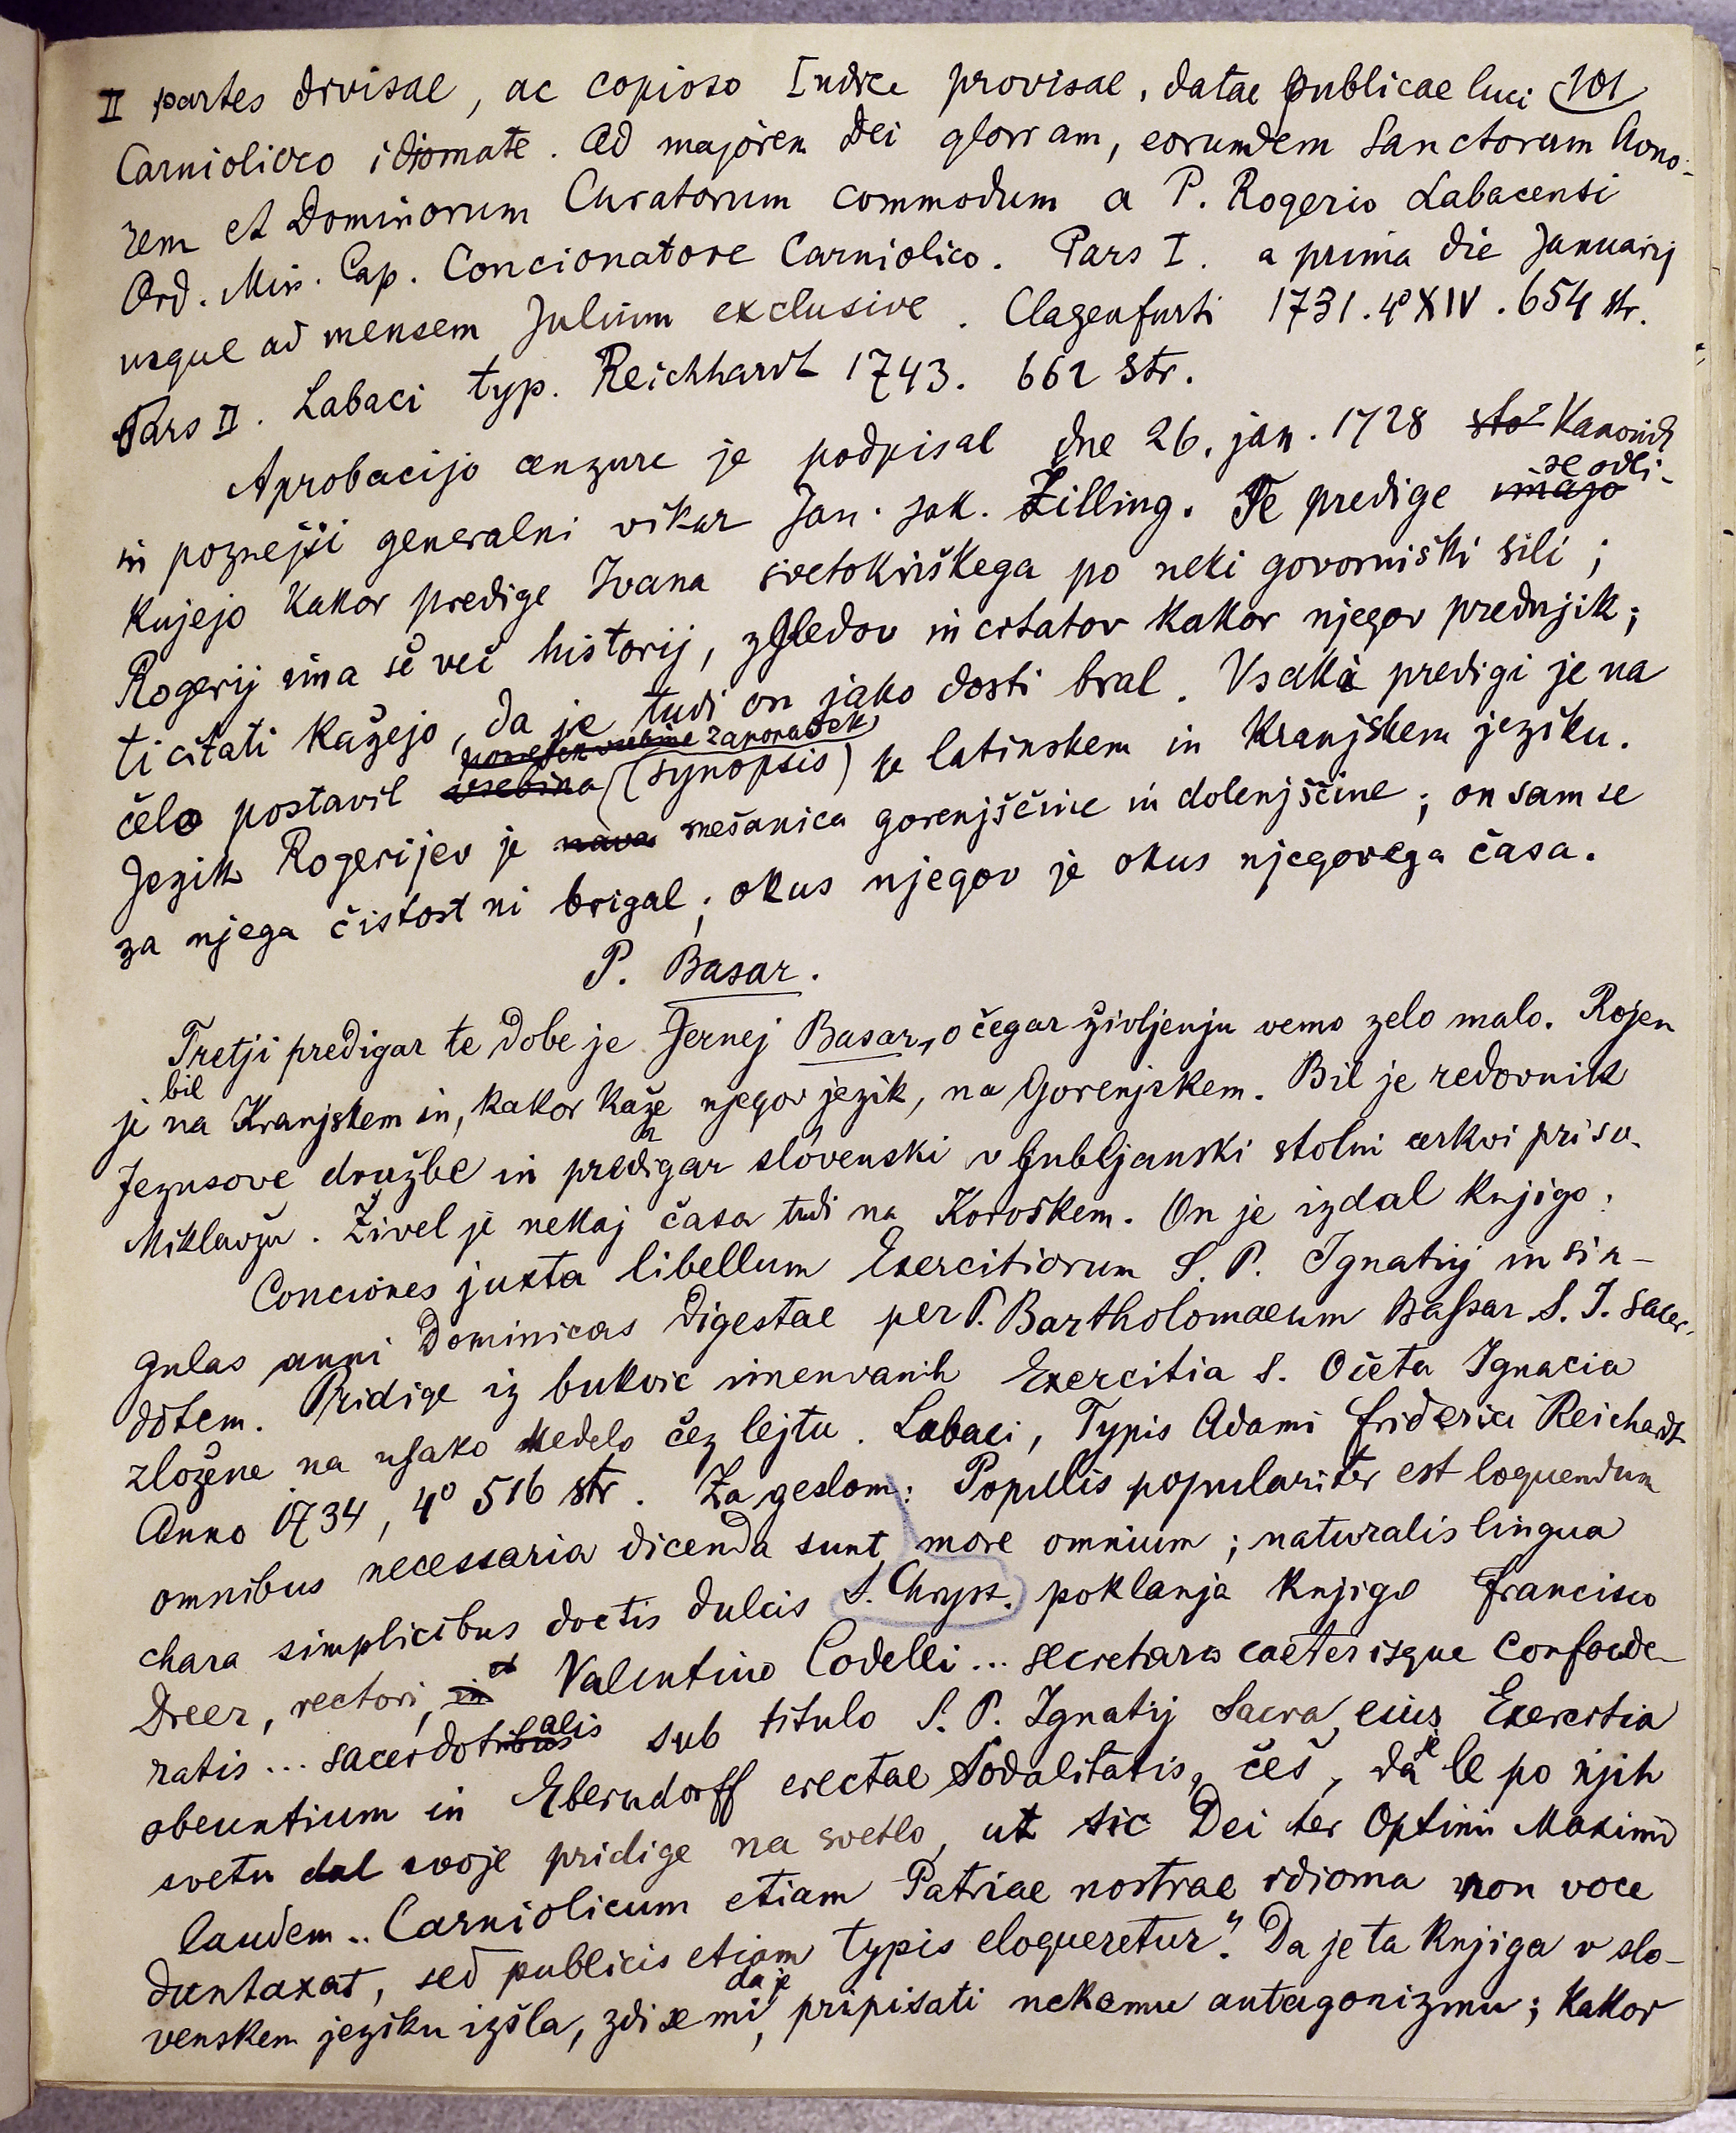 II partes divisae, ac copioso Indice provisae, datae publicae luci 101
Carniolico idiomate. Ad majorem Dei gloriam, eorumdem Sanctorum hono-
rem et Dominorum Curatorum commodum a P. Rogerio Labacensi
Ord. Min. Cap. Concionatore Carniolico. Pars I. a prima die Januarij
usque ad mensem Julium exclusive. Clagenfurti 1731. 4° XIV. 654 str.
Pars II. Labaci typ. Reichhardt 1743. 662 str.
Aprobacijo cenzure je podpisal dne 26. jan. 1728 stol Kanonik
in poznejši generalni vikar Jan. Jak. Žilling. Te predige imajo se odli-
kujejo kakor predige Ivana svetokriškega po neki govorniški sili;
Rogerij ima še več historij, zgledov in citatov kakor njegov prednjik;
ti citati kažejo, da je tudi on jako dosti bral. Vsaki predigi je na
čelo postavil vsebina zaporadek (synopsis) v latinskem in kranjskem jeziku.
Jezik Rogerijev je mešanica gorenjščine in dolenjščine; on sam se
za njega čistost ni brigal; okus njegov je okus njegovega časa.
P. Basar.
Tretji predigar te dobe je Jernej Basar, o čegar življenju vemo zelo malo. Rojen
je bil na Kranjskem in, kakor kaže njegov jezik, na Gorenjskem. Bil je redovnik
Jezusove družbe in predigar slovenski v ljubljanski stolni cerkvi pri sv.
Miklavžu. Živel je nekaj časa tudi na Koroškem. On je izdal knjigo:
Conciones juxta libellum Exercitiorum S. P. Ignatij in sin-
gulas anni Dominicas digestae per P. Bartholomaeum Baſsar S. J. sacer-
dotem. Pridige iz bukvic imenvanih Exercitia S. Očeta Ignacia
zložene na uſako nedelo čez lejtu. Labaci, Typis Adami Friderici Reichardt
Anno 1734, 4° 516 str. Za geslom: Populis populariter est loquendum
omnibus necessaria dicenda sunt more omnium; naturalis lingua
chara simplicibus doctis dulcis S. Chrys. poklanja knjigo Francisco
Dreer, rectori, in et Valentino Codelli... secretario caeterisque Confoede-
ratis... sacerdotalis sub titulo S. P. Ignatij Sacra eius Exercitia
obeuntium in Eberndorff erectae Sodalitatis, češ, da je le po njih
svetu dal svoje pridige na svetlo, ut sic Dei ter Optimi Maximi
laudem.. Carniolicum etiam Patriae nostrae idioma non voce
duntaxat, sed publicis etiam typis eloqueretur." Da je ta knjiga v slo-
venskem jeziku izšla, zdi se mi, da je pripisati nekemu antagonizmu; kakor